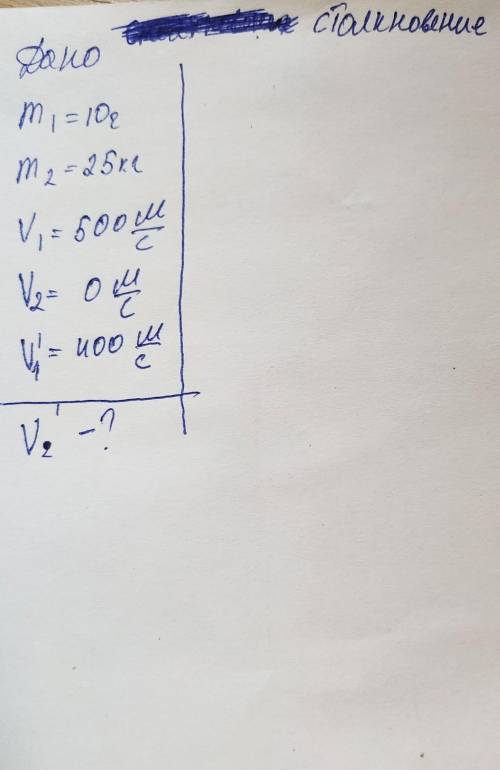 столкновение
Дано
m₁ = 10г
m₂ = 25кг
V₁ = 500 м/с
V₂ = 0 м/с
V₁' = 400 м/с
V₂' - ?